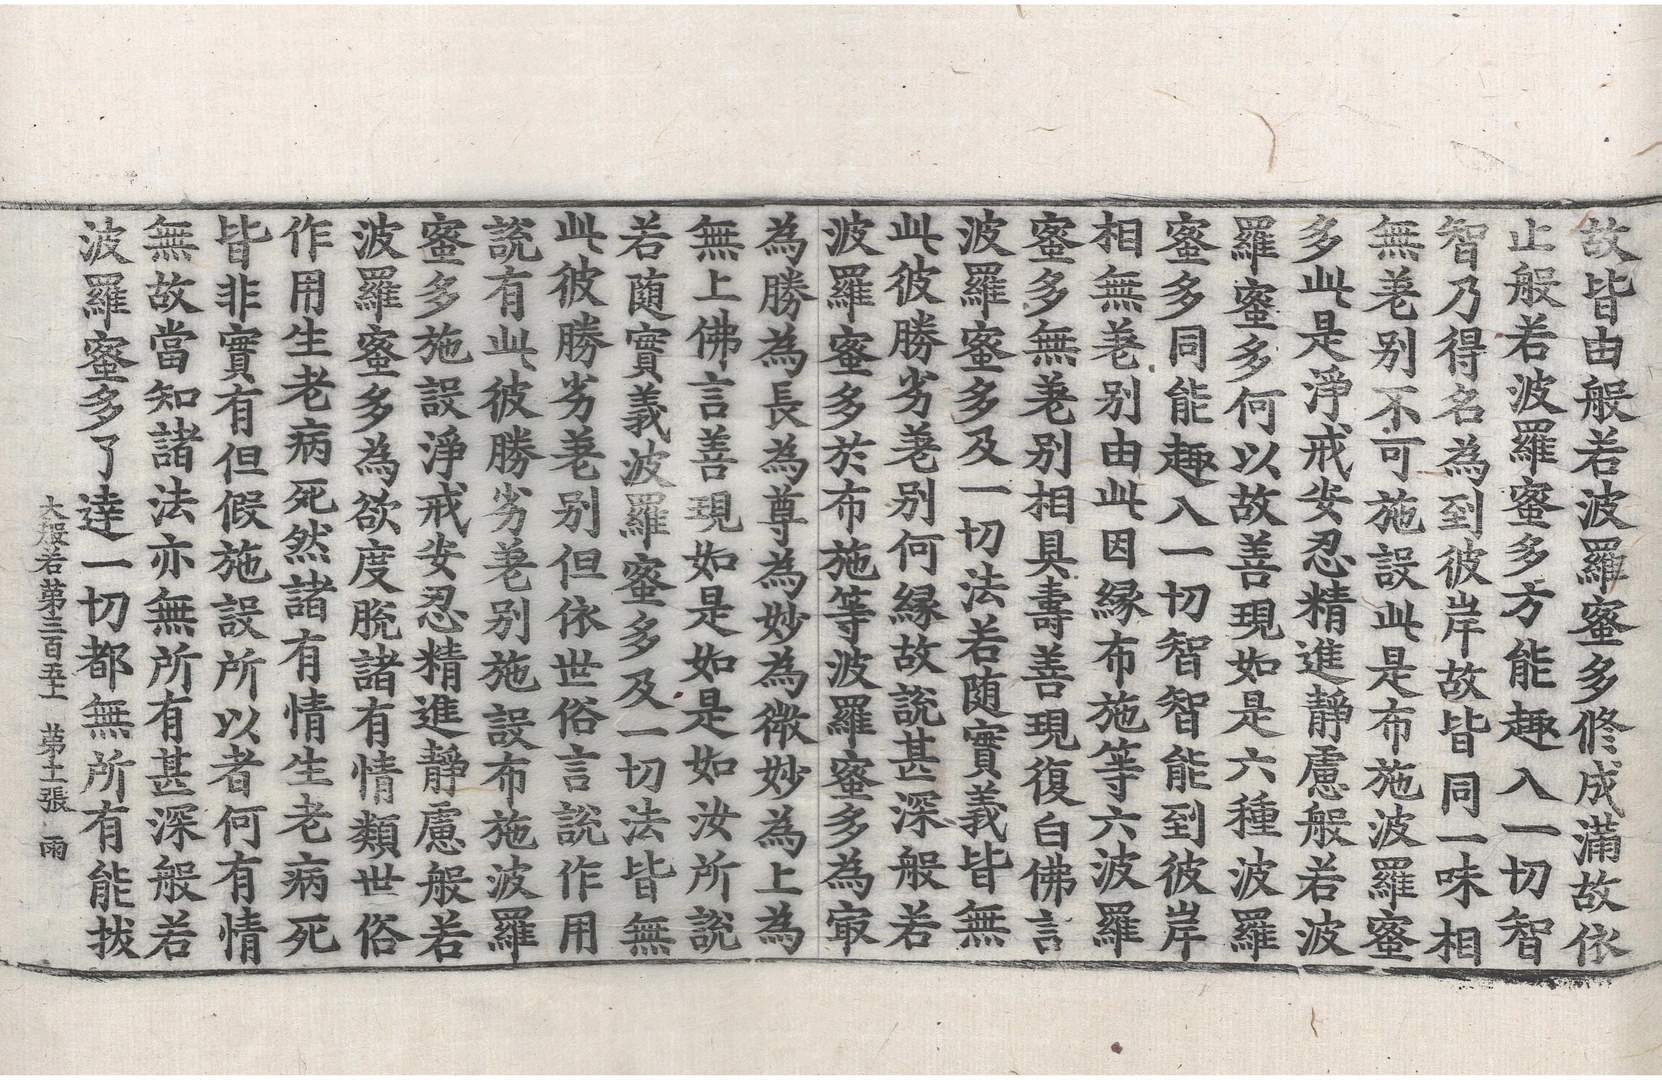 故皆由般若波羅蜜多修成滿故依
止般若波羅蜜多方能趣入一切智
智乃得名為到彼岸故皆同一味相
無差别不可施設此是布施波羅蜜
多此是淨戒安忍精進靜慮般若波
羅蜜多何以故善現如是六種波羅
蜜多同能趣入一切智智能到彼岸
相無差别由此因縁布施等六波羅
蜜多無差别相具壽善現復白佛言
波羅蜜多及一切法若随實義皆無
此彼勝劣差别何縁故說甚深般若
波羅蜜多於布施等波羅蜜多為㝡
為勝為長為尊為妙為微妙為上為
無上佛言善現如是如是如汝所說
若随實義波羅蜜多及一切法皆無
此彼勝劣差别但依世俗言說作用
說有此彼勝劣差别施設布施波羅
蜜多施設淨戒安忍精進靜慮般若
波羅蜜多為欲度脫諸有情類世俗
作用生老病死然諸有情生老病死
皆非實有但假施設所以者何有情
無故當知諸法亦無所有甚深般若
波羅蜜多了達一切都無所有能拔
大般若第三百五十　第十二張　雨